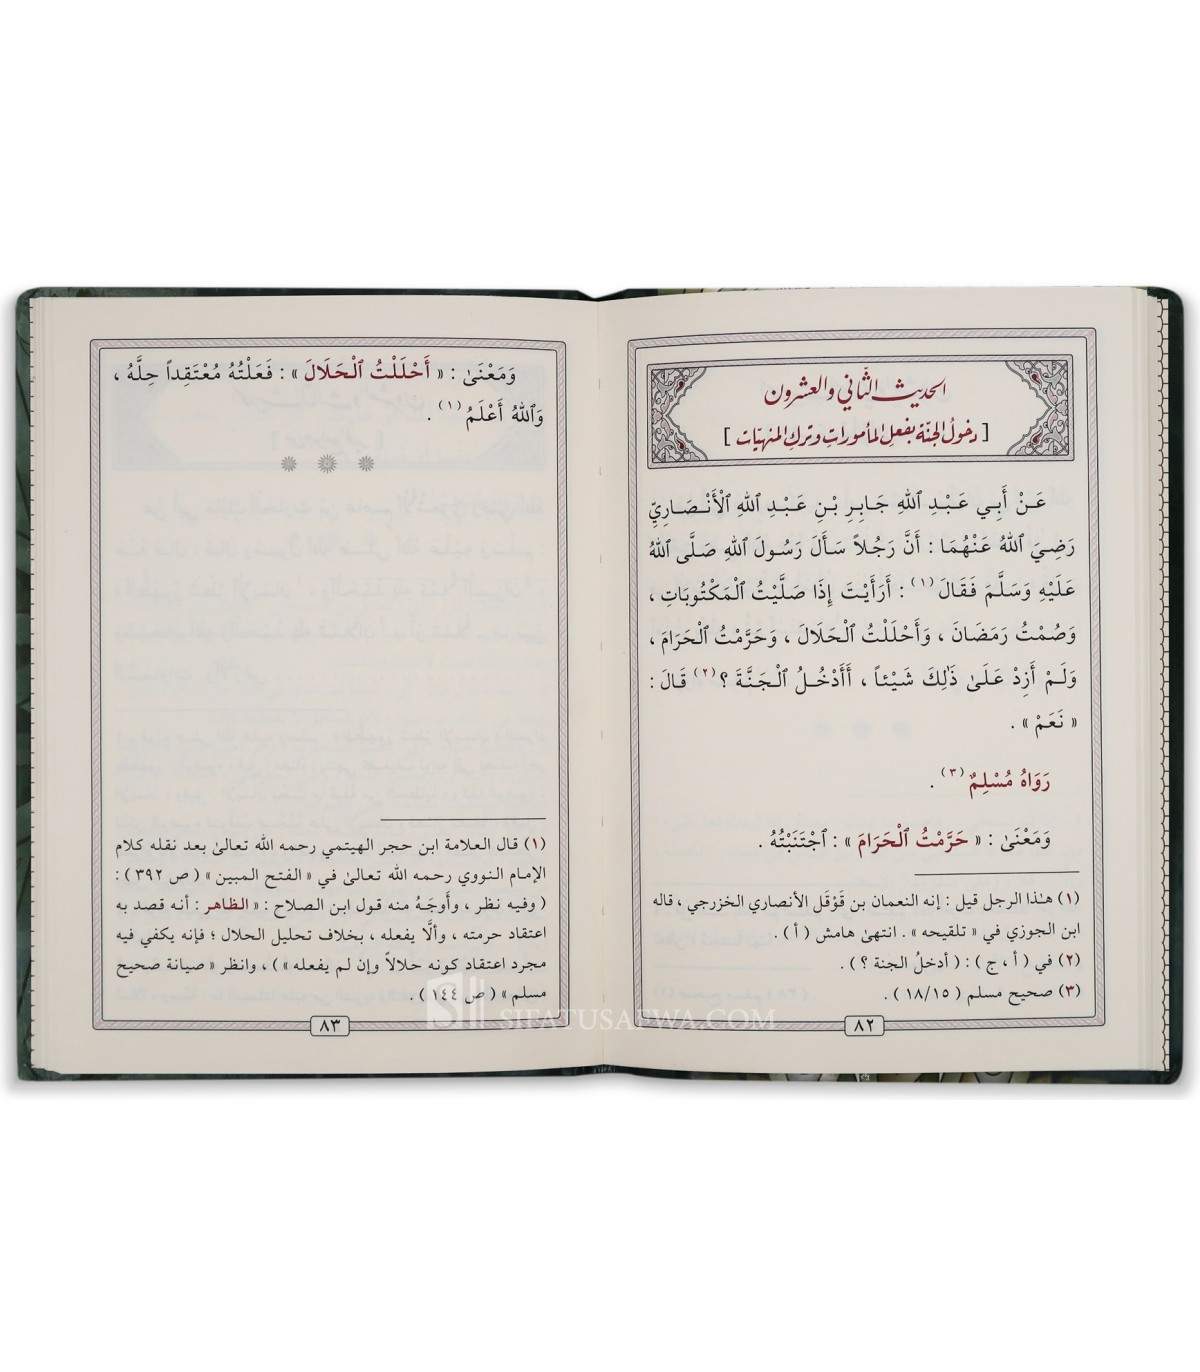 الحديث الثَّاني والعشرون
[ دخولُ الجنّة بفعلِ المأموراتِ وتركِ المنهيّات ]
عَنْ أَبِي عَبْدِ ٱللهِ جَابِرِ بْنِ عَبْدِ ٱللهِ ٱلْأَنْصَارِيِّ
رَضِيَ ٱللهُ عَنْهُمَا : أَنَّ رَجُلاً سَأَلَ رَسُولَ ٱللهِ صَلَّى ٱللهُ
عَلَيْهِ وَسَلَّمَ فَقَالَ (١) : أَرَأَيْتَ إِذَا صَلَّيْتُ ٱلْمَكْتُوبَاتِ ،
وَصُمْتُ رَمَضَانَ ، وَأَحْلَلْتُ ٱلْحَلَالَ ، وَحَرَّمْتُ ٱلْحَرَامَ ،
وَلَمْ أَزِدْ عَلَىٰ ذَٰلِكَ شَيْئاً ، أَأَدْخُلُ ٱلْجَنَّةَ ؟ (٢) قَالَ :
« نَعَمْ » .
رَوَاهُ مُسْلِمٌ (٣) .
وَمَعْنَىٰ : « حَرَّمْتُ ٱلْحَرَامَ » : ٱجْتَنَبْتُهُ .
(١) هـٰذا الرجل قيل : إنه النعمان بن قَوْقَل الأنصاري الخزرجي ، قاله
ابن الجوزي في « تلقيحه » . انتهىٰ هامش ( أ ) .
(٢) في ( أ ، ج ) : ( أدخلُ الجنة ؟ ) .
(٣) صحيح مسلم ( ١٨/١٥ ) .
٨٢
وَمَعْنَىٰ : « أَحْلَلْتُ ٱلْحَلَالَ » : فَعَلْتُهُ مُعْتَقِداً حِلَّهُ ،
وَٱللهُ أَعْلَمُ (١) .
(١) قال العلامة ابن حجر الهيتمي رحمه الله تعالىٰ بعد نقله كلام
الإمام النووي رحمه الله تعالىٰ في « الفتح المبين » ( ص ٣٩٢ ) :
( وفيه نظر ، وأَوجَهُ منه قول ابن الصلاح : « الظاهر : أنه قصد به
اعتقاد حرمته ، وألَّا يفعله ، بخلاف تحليل الحلال ؛ فإنه يكفي فيه
مجرد اعتقاد كونه حلالاً وإن لم يفعله » ) ، وانظر « صيانة صحيح
مسلم » ( ص ١٤٤ ) .
٨٣
SIFATUSAFWA.COM